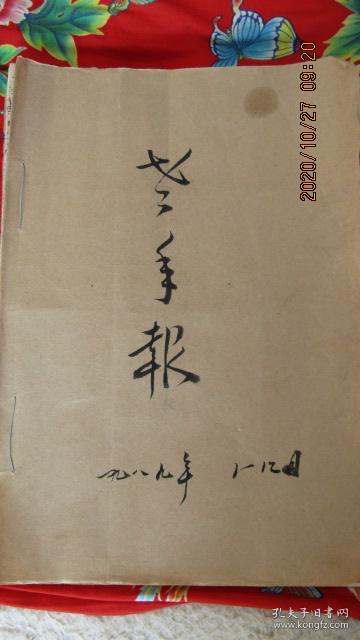 老年報
一九八九年 1-12月
2020/10/27 09:20
孔夫子旧书网
www.kongfz.com